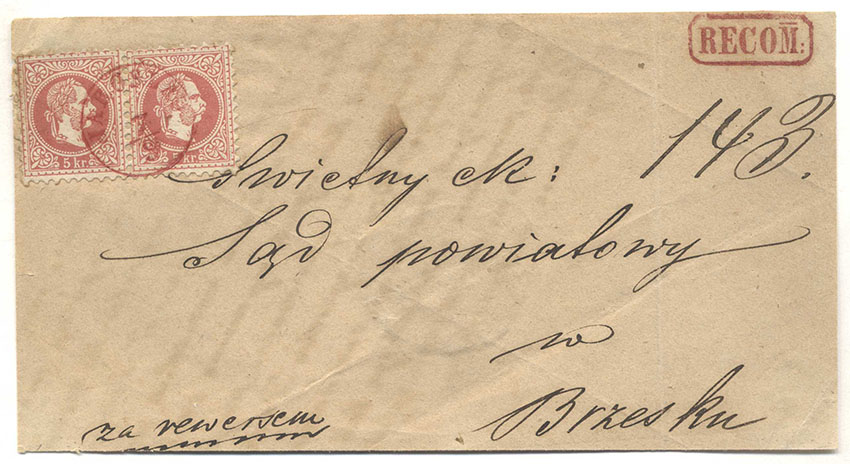 RECOM̅:
143.
5 kr. kr.
Swietny ck:
Sąd powiatowy
w
Brzesku
za rewersem